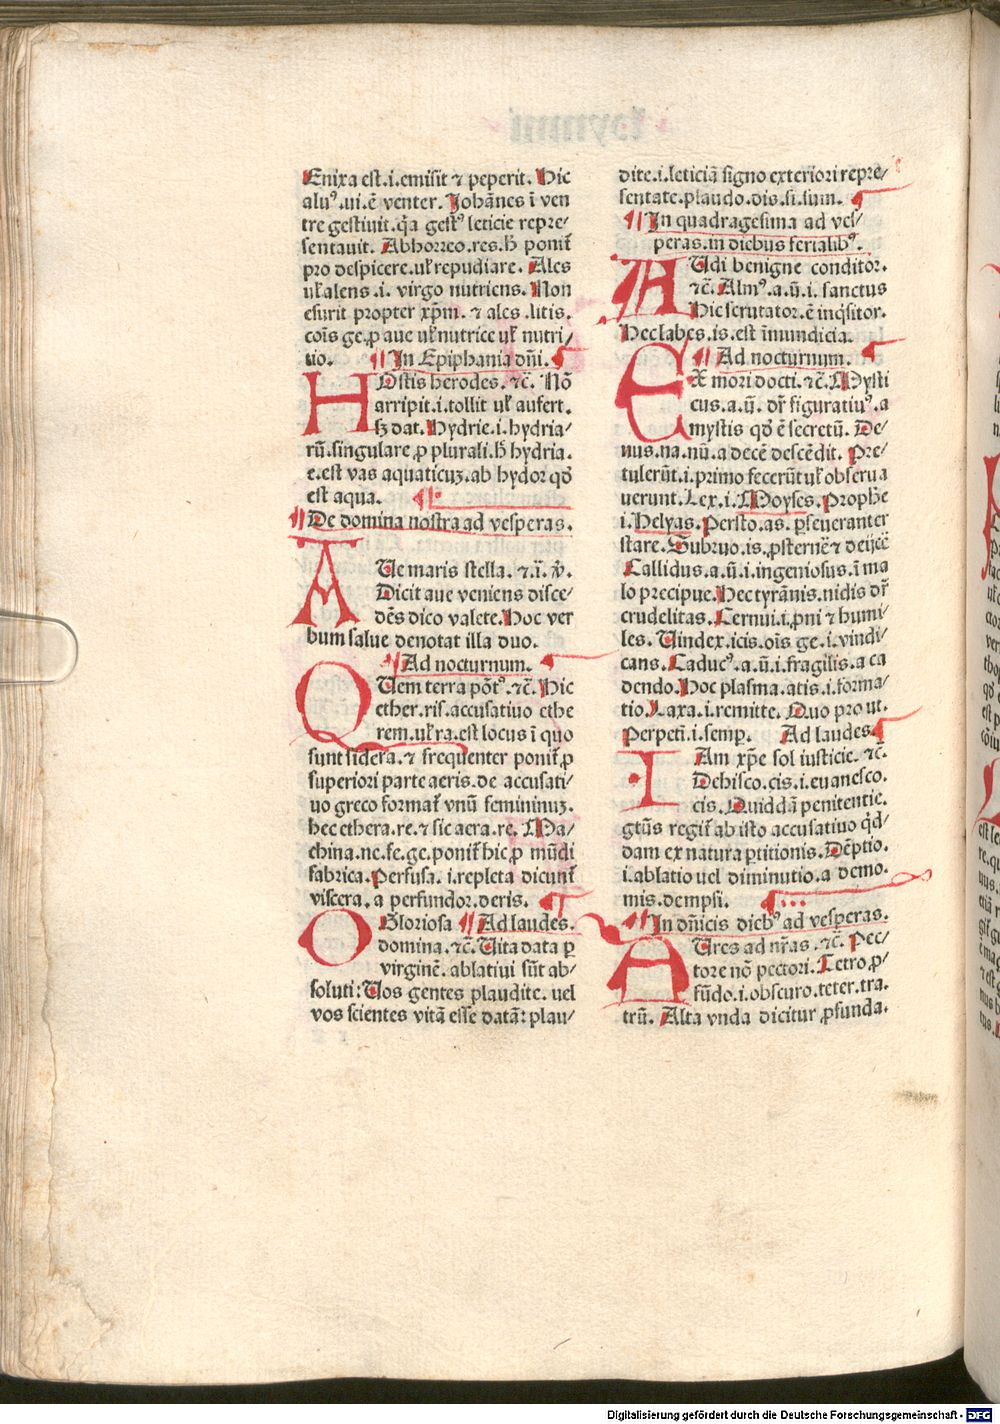 Enixa est.i.emisit ⁊ peperit. Hic
aluꝰ.ui.ē venter. Johānes ī ven
tre gestiuit.q̄a gestꝰ leticie repre⸗
sentauit. Abhorreo.res.h̄ ponit᷑
pro despicere.ul̓ repudiare. Ales
ul̓ alens .i. virgo nutriens. Non
esurit propter xp̄m. ⁊ ales .litis.
cōis ge.ꝓ aue ul̓ nutrice ul̓ nutri⸗
uo. ¶ In Epiphania dn̄i.
HOstis herodes. ⁊c̄. Nō
arripit.i.tollit ul̓ aufert.
sꝫ dat. Hydrie.i.hydria⸗
rū.singulare ꝓ plurali.h̄ hydria.
e.est vas aquaticuꝫ.ab hydor qd̓
est aqua.
¶ De domina nostra ad vesperas.
AUe maris stella. ⁊.ī. ꝟ.
Dicit aue veniens disce⸗
dēs dico valete. Hoc ver
bum salue denotat illa duo.
¶ Ad nocturnum.
QUem terra pōtꝰ.⁊c̄. Hic
ether.ris.accusatiuo ethe
rem.ul̓ ra.est locus ī quo
sunt sidera.⁊ frequenter ponit᷑ ꝓ
superiori parte aeris.de accusati⸗
uo greco format᷑ vnū femininuꝫ.
hec ethera.re.⁊ sic aera.re. Ma⸗
china.ne.fe.ge.ponit᷑ hic ꝓ mūdi
fabrica. Perfusa.i.repleta dicunt᷑
viscera.a perfundor.deris.
OGloriosa ¶ Ad laudes.
domina.⁊c̄. Uita data ꝑ
virginē.ablatiui sūt ab⸗
soluti: Uos gentes plaudite. uel
vos scientes vitā esse datā: plau⸗
dite.i.leticiā signo exteriori repre⸗
sentate.plaudo.dis.si.sum.
¶ In quadragesima ad ves⸗
peras.in diebus ferialibꝰ.
AUdi benigne conditor.
⁊c̄. Almꝰ.a.ū.i. sanctus
Hic scrutator.ē inq̇sitor.
Hec labes.is.est īmundicia.
¶ Ad nocturnum.
EX mori docti.⁊c̄. Mysti
cus.a.ū. dr̄ figuratiuꝰ.a
mystis qd̓ ē secretū. De⸗
nus.na.nū.a decē descēdit. Pre⸗
tulerūt.i.primo fecerūt ul̓ obserua
uerunt. Lex.i. Moyses. Prophe
i. Helyas. Persto.as. ꝑseueranter
stare. Subruo.is.ꝓsternē̄ ⁊ deijcē̄
Callidus.a.ū.i.ingeniosus.ī ma
lo precipue. Hec tyrānis.nidis dr̄
crudelitas. Cernui.i.ꝓni ⁊ humi⸗
les. Uindex.icis.ois̄ ge.i.vindi⸗
cans. Caducꝰ.a.ū.i.fragilis.a ca
dendo. Hoc plasma.atis.i.forma⸗
tio. Laxa.i.remitte. Quo pro ut.
Perpeti.i.semp̱. Ad laudes
IAm xp̄e sol iusticie. ⁊c̄.
Dehisco.cis.i.euanesco.
cis. Quiddā penitentie.
gtūs regit᷑ ab isto accusatiuo q̇d⸗
dam ex natura ꝑtitionis. Dēptio.
i.ablatio uel diminutio.a demo.
mis.dempsi.
¶ In dn̄icis diebꝰ ad vesperas.
AUres ad nr̄as. ⁊c̄. Pec⸗
tore nō pectori. Tetro ꝓ⸗
fūdo.i.obscuro.teter.tra.
trū. Alta vnda dicitur ꝓfunda.
Digitalisierung gefördert durch die Deutsche Forschungsgemeinschaft - DFG